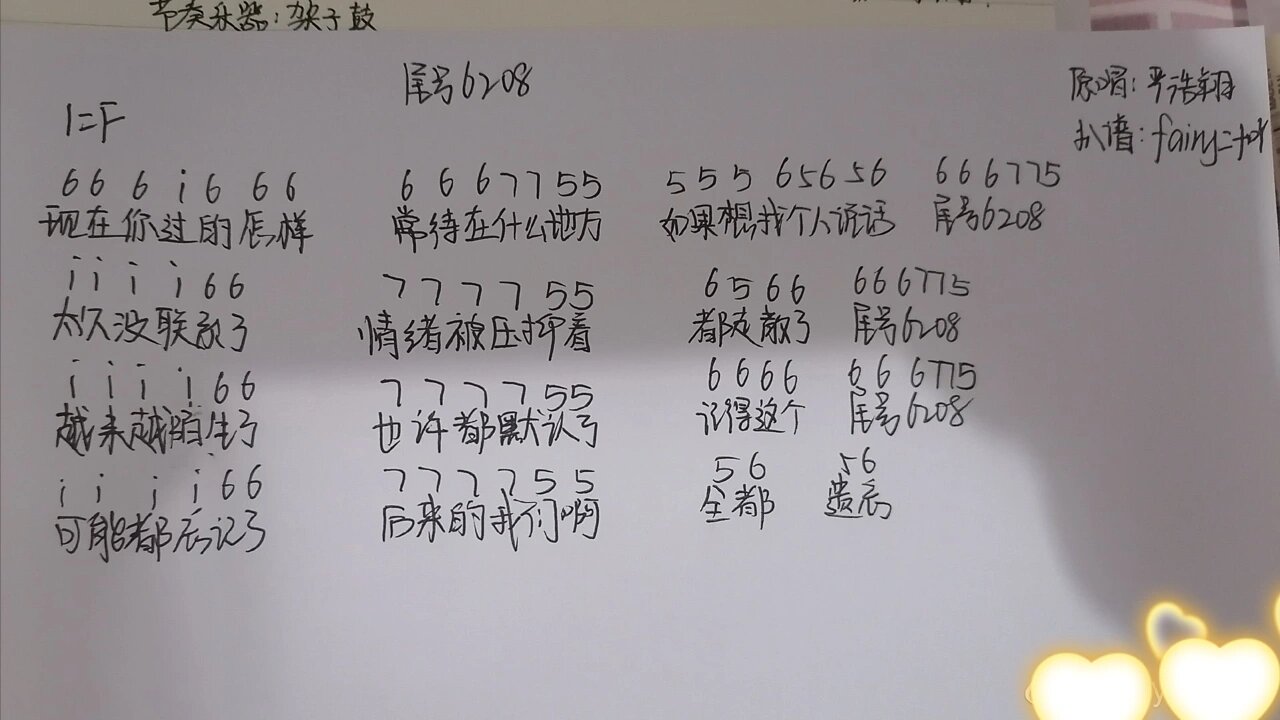 节奏乐器：架子鼓
尾号6208
原唱：严浩翔
扒谱：
1=F
6 6 6 i 6 6 6  6 6 6 7 7 5 5  5 5 5 6 5 6 5 6  6 6 6 7 7 5
现在你过的怎样  常待在什么地方  如果想找个人说话  尾号6208
i i i i 6 6  7 7 7 7 5 5  6 5 6 6  6 6 6 7 7 5
太久没联系了  情绪被压抑着  都走散了  尾号6208
i i i i 6 6  7 7 7 7 5 5  6 6 6 6  6 6 6 7 7 5
越来越陌生了  也许都默认了  记得这个  尾号6208
i i i i 6 6  7 7 7 7 5 5  5 6  5 6
可能都忘记了  后来的我们啊  全都  遗忘